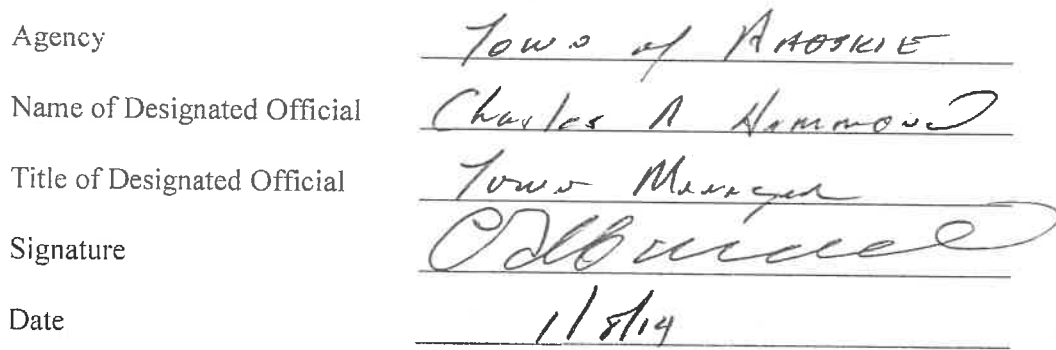 Agency Town of AHOSKIE
Name of Designated Official Charles A Hammond
Title of Designated Official Town Manager
Signature
Date 1/8/14